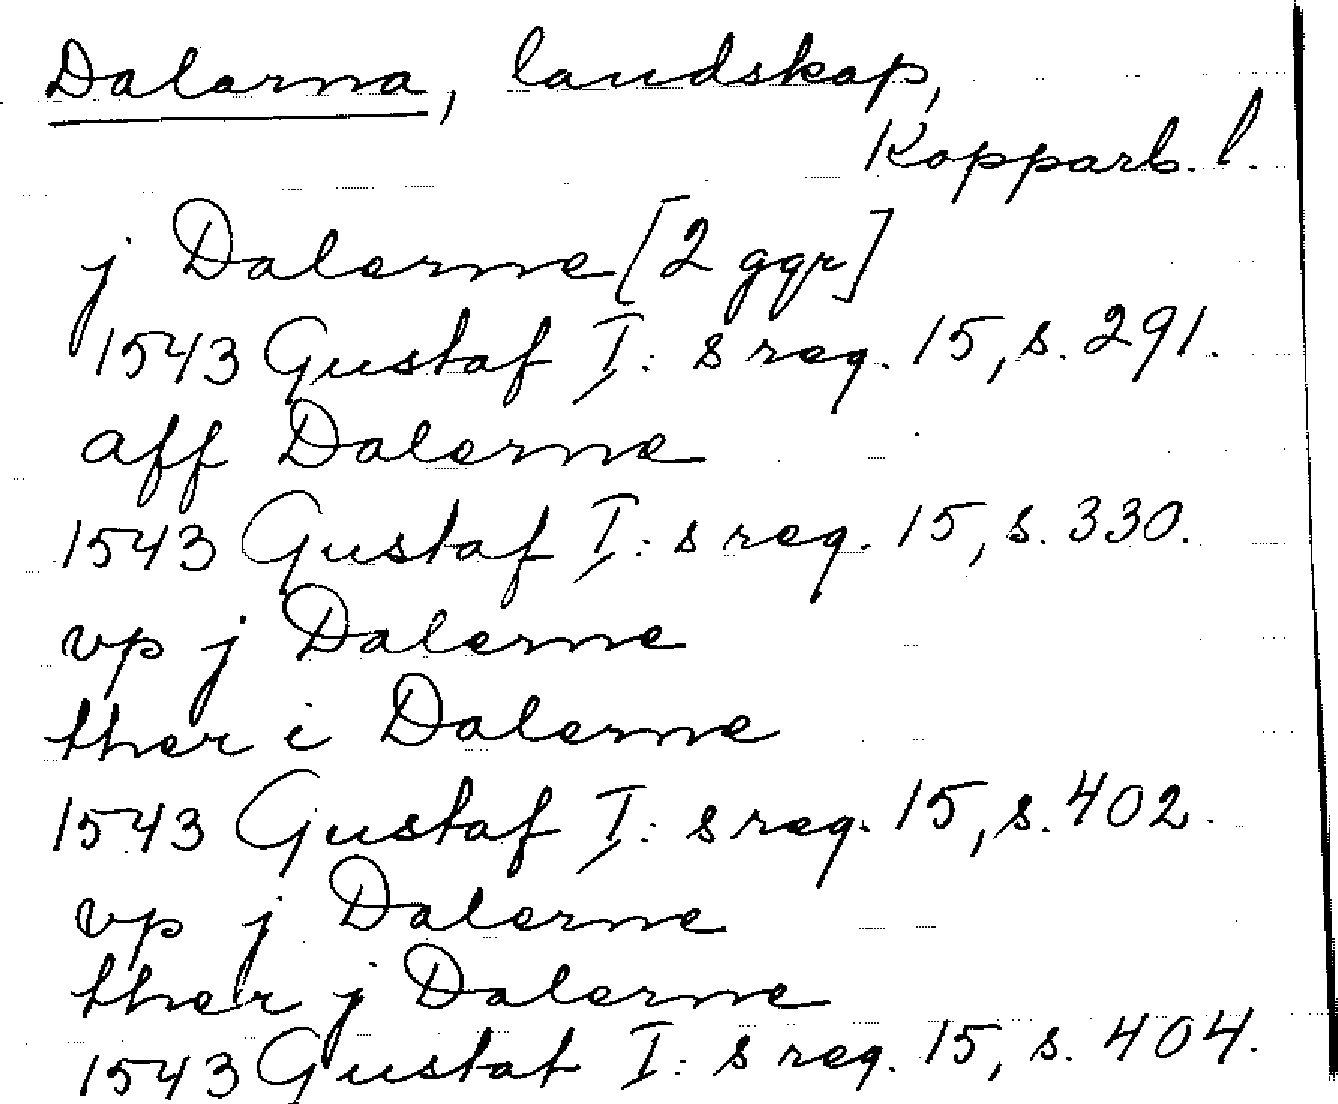 Dalarna, landskap,
Kopparb. l.
j Dalerne [2 ggr]
1543 Gustaf I: s reg. 15, s. 291.
aff Dalerne
1543 Gustaf I: s reg. 15, s. 330.
vp j Dalerne
ther i Dalerne
1543 Gustaf I: s reg. 15, s. 402.
vp j Dalerne
ther j Dalerne
1543 Gustaf I: s reg. 15, s. 404.